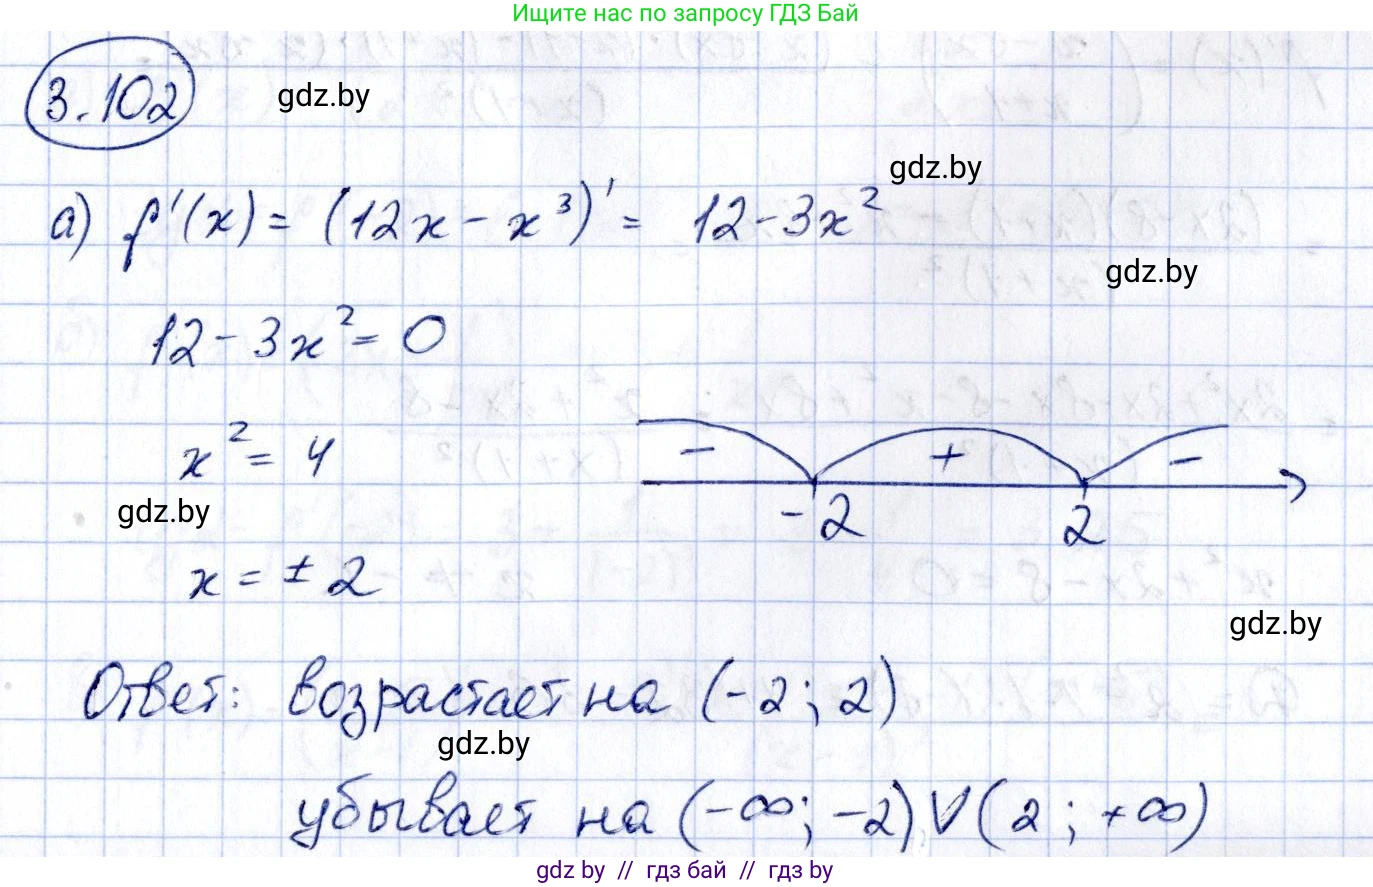 Ищите нас по запросу ГДЗ Бай
3.102
gdz.by
gdz.by
а) f'(x) = (12x - x³)' = 12 - 3x²
gdz.by
12 - 3x² = 0
x² = 4
- + -
gdz.by
-2 2
x = ± 2
gdz.by
Ответ: возрастает на (-2; 2)
gdz.by
убывает на (-∞; -2) V (2; +∞)
gdz by // гдз бай // гдз by